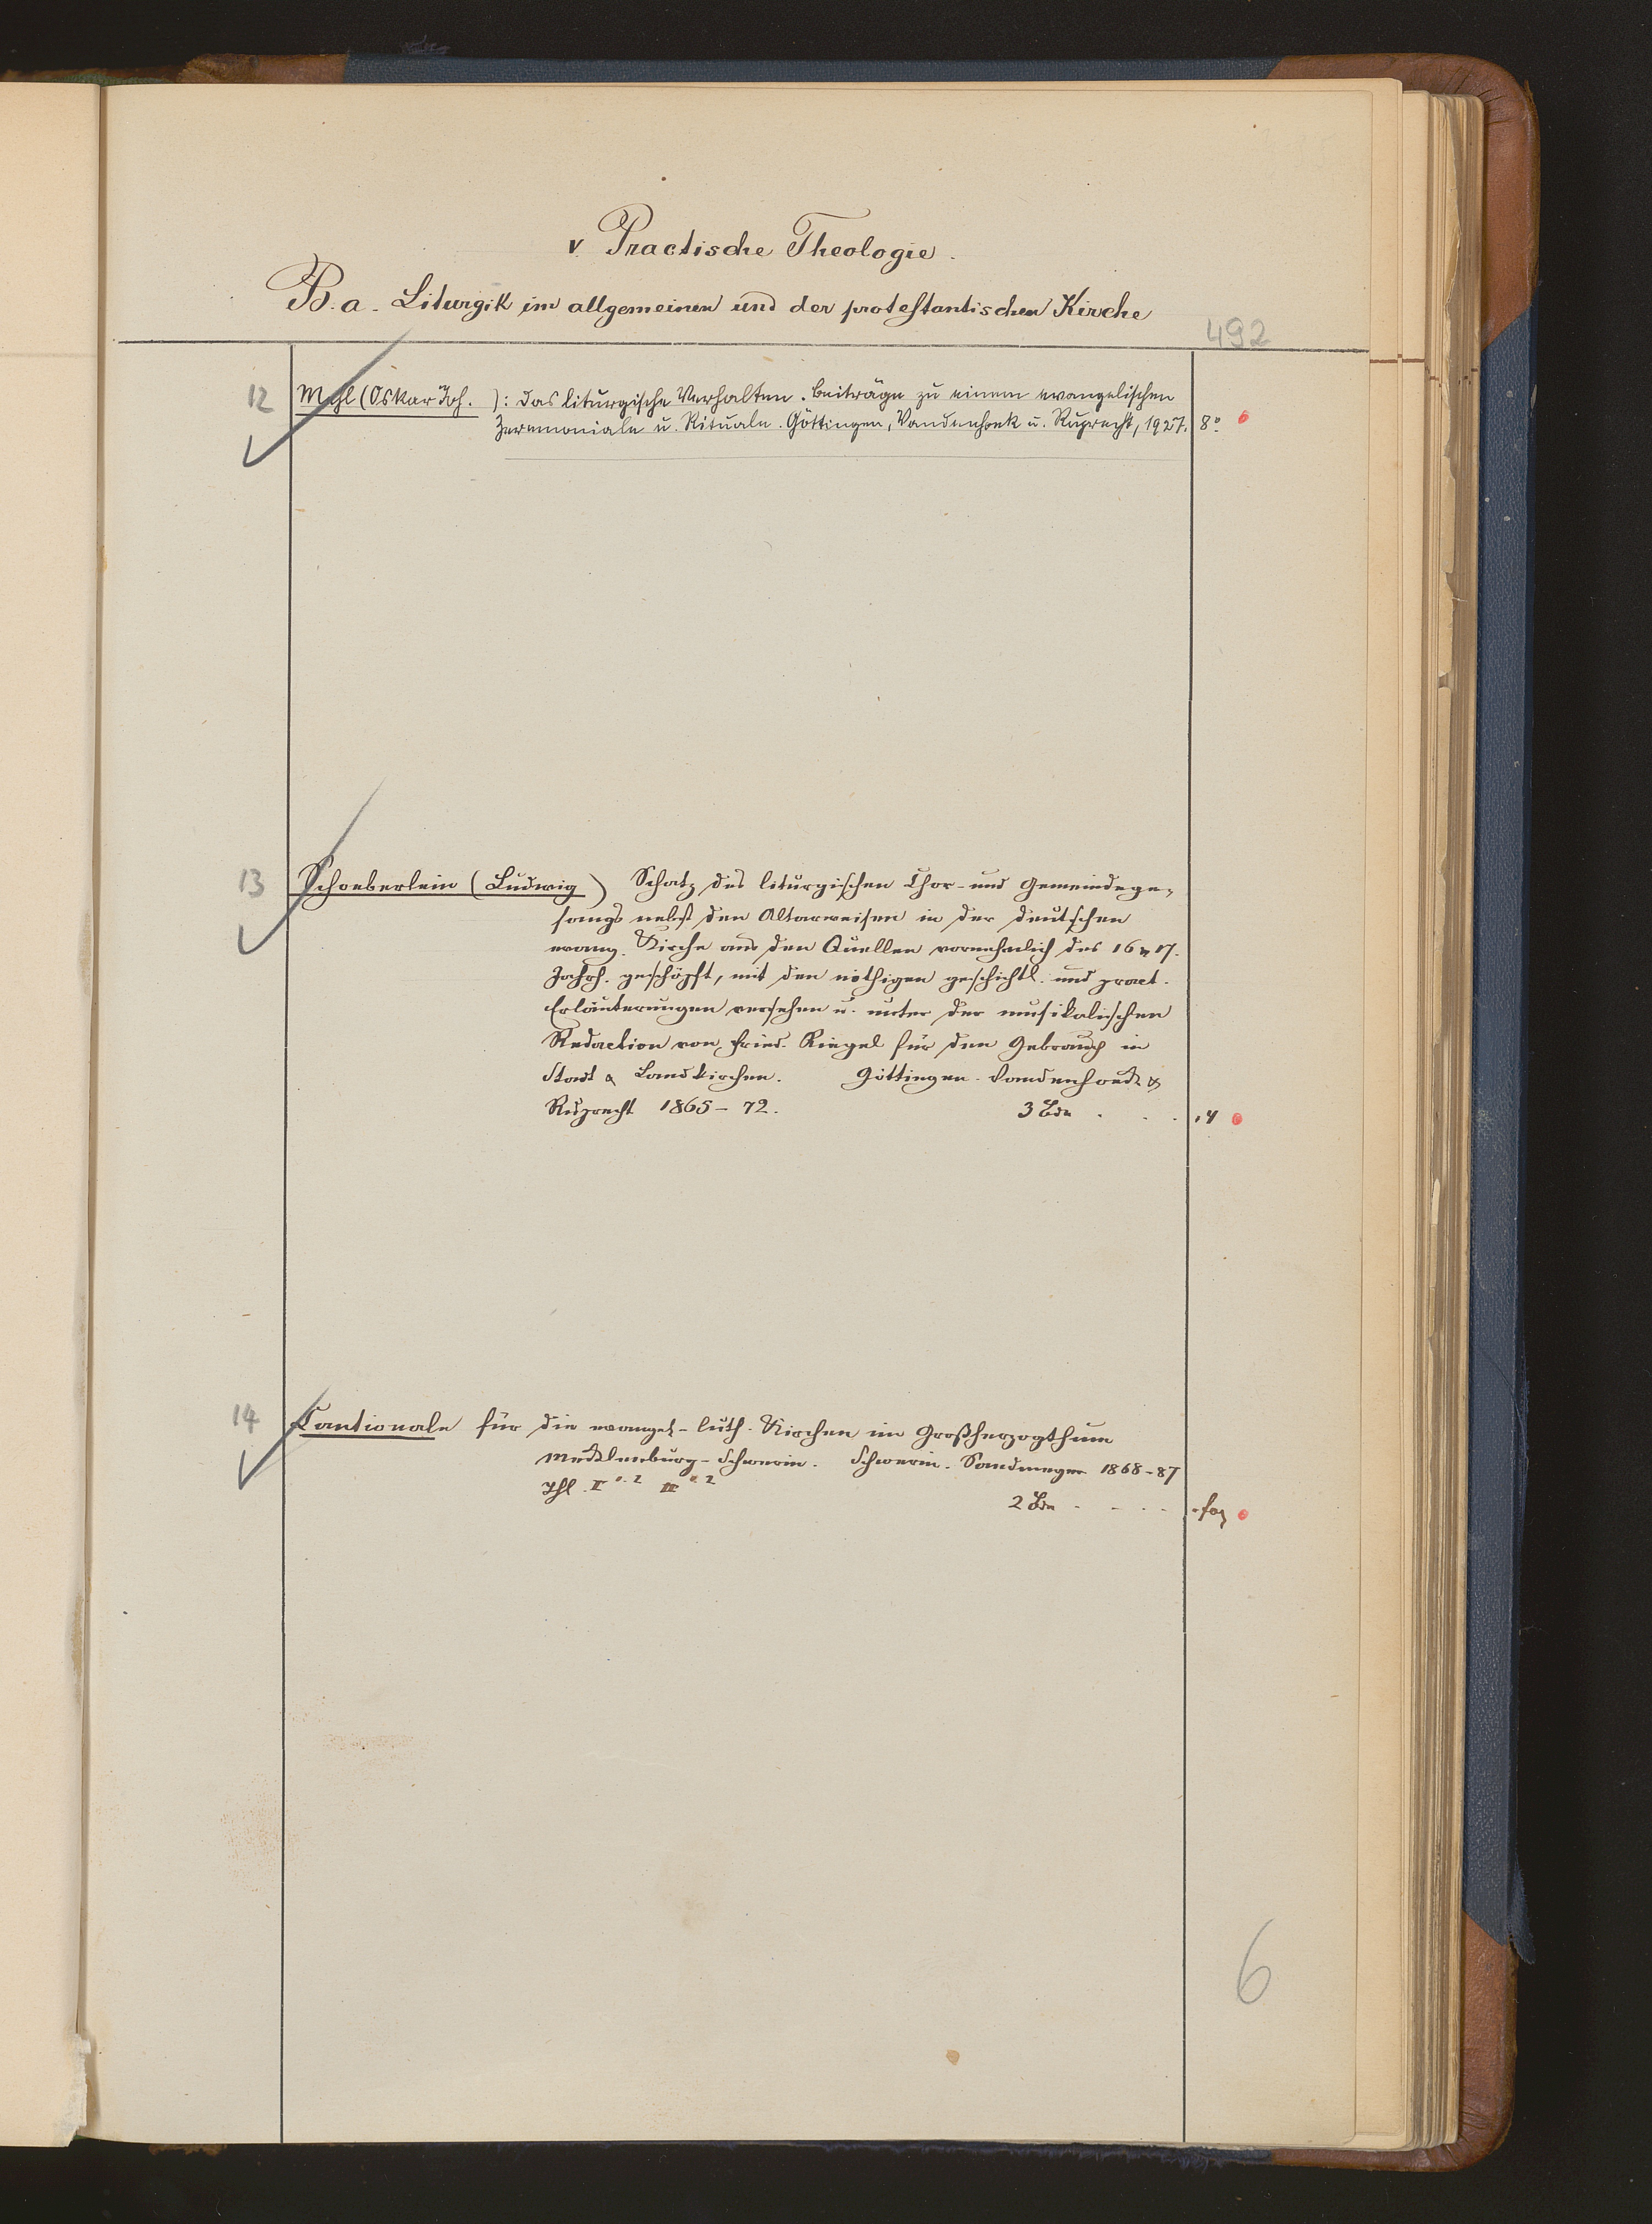 V. Practische Theologie.
B. a. Liturgik im allgemeinen und der protestantischen Kirche
492
12 Mehl (Oskar Joh. ): Das liturgische Verhalten. Beiträge zu einem evangelischen
Zeremoniale u. Rituale. Göttingen, Vandenhoek u. Ruprecht, 1927. 8°
13 Schoeberlein (Ludwig) Schatz des liturgischen Chor- und Gemeindege-
sangs nebst den Altarweisen in der deutschen
evang. Kirche aus den Quellen vornehmlich des 16 u 17.
Jahrh. geschöpft, mit den nöthigen geschichtl. und pract.
Erläuterungen versehen u. unter der musikalischen
Redaction von Fried. Riegel für den Gebrauch in
Stadt & Landkirchen. Göttingen. Vandenhoeck &
Ruprecht 1865 - 72. 3 Bde . . . . 4
14 Cantionale für die evangel-luth. Kirchen im Großherzogthum
Mecklenburg-Schwerin. Schwerin. Sandmeyer 1868-87
Thl. I 2 II 2 2 Bde . . . . fol
6